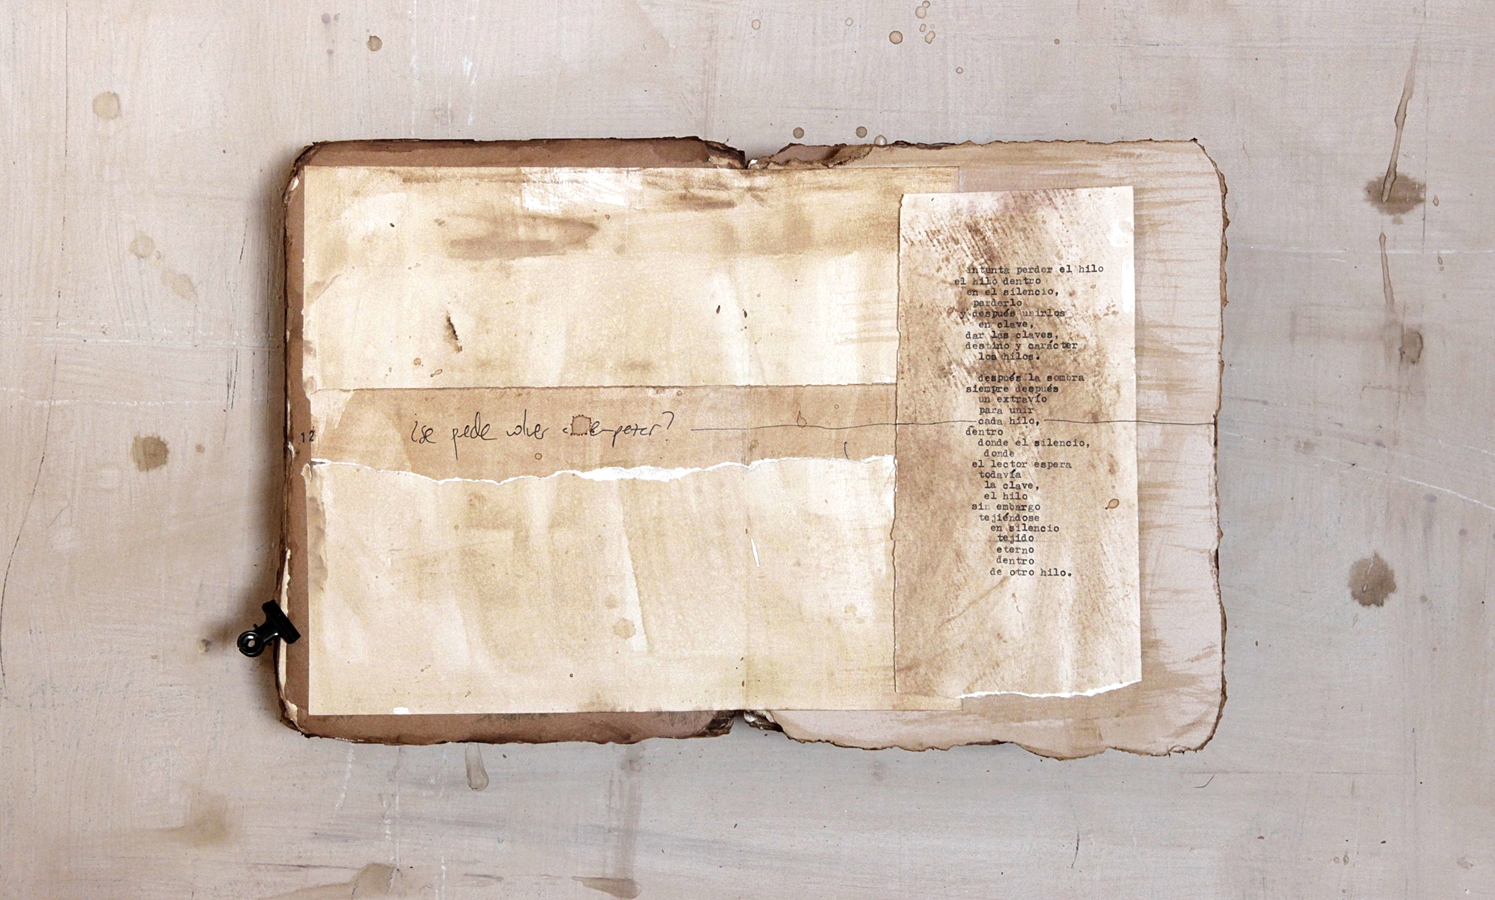 12
¿se puede volver a empezar?
antunta perder el hilo
el hilo dentro
en el silencio,
perderlo
y después unirlos
en clave,
dar las claves,
destino y carácter
los hilos.
después la sombra
siempre después
un extravío
para unir
cada hilo,
dentro
donde el silencio,
donde
el lector espera
todavía
la clave,
el hilo
sin embargo
tejiéndose
en silencio
tejido
eterno
dentro
de otro hilo.